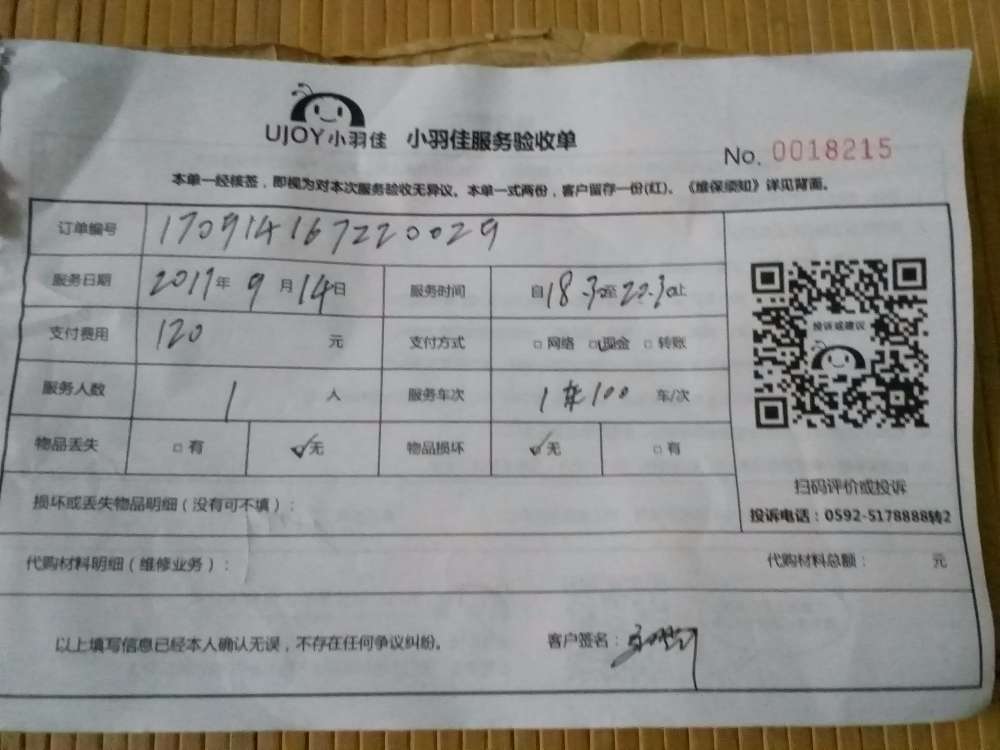 UJOY小羽佳 小羽佳服务验收单
No. 0018215
本单一经核签，即视为对本次服务验收无异议。本单一式两份，客户留存一份(红)。《维保须知》详见背面。
订单编号 170914167220029
服务日期 2017年9月14日 服务时间 自18.30至22.30止
支付费用 120 元 支付方式 □网络 □现金 □转账
服务人数 1 人 服务车次 1车100 车/次
物品丢失 □有 ✓无 物品损坏 ✓无 □有
投诉或建议
扫码评价或投诉
投诉电话：0592-5178888转2
损坏或丢失物品明细（没有可不填）：
代购材料明细（维修业务）： 代购材料总额： 元
以上填写信息已经本人确认无误，不存在任何争议纠纷。 客户签名：